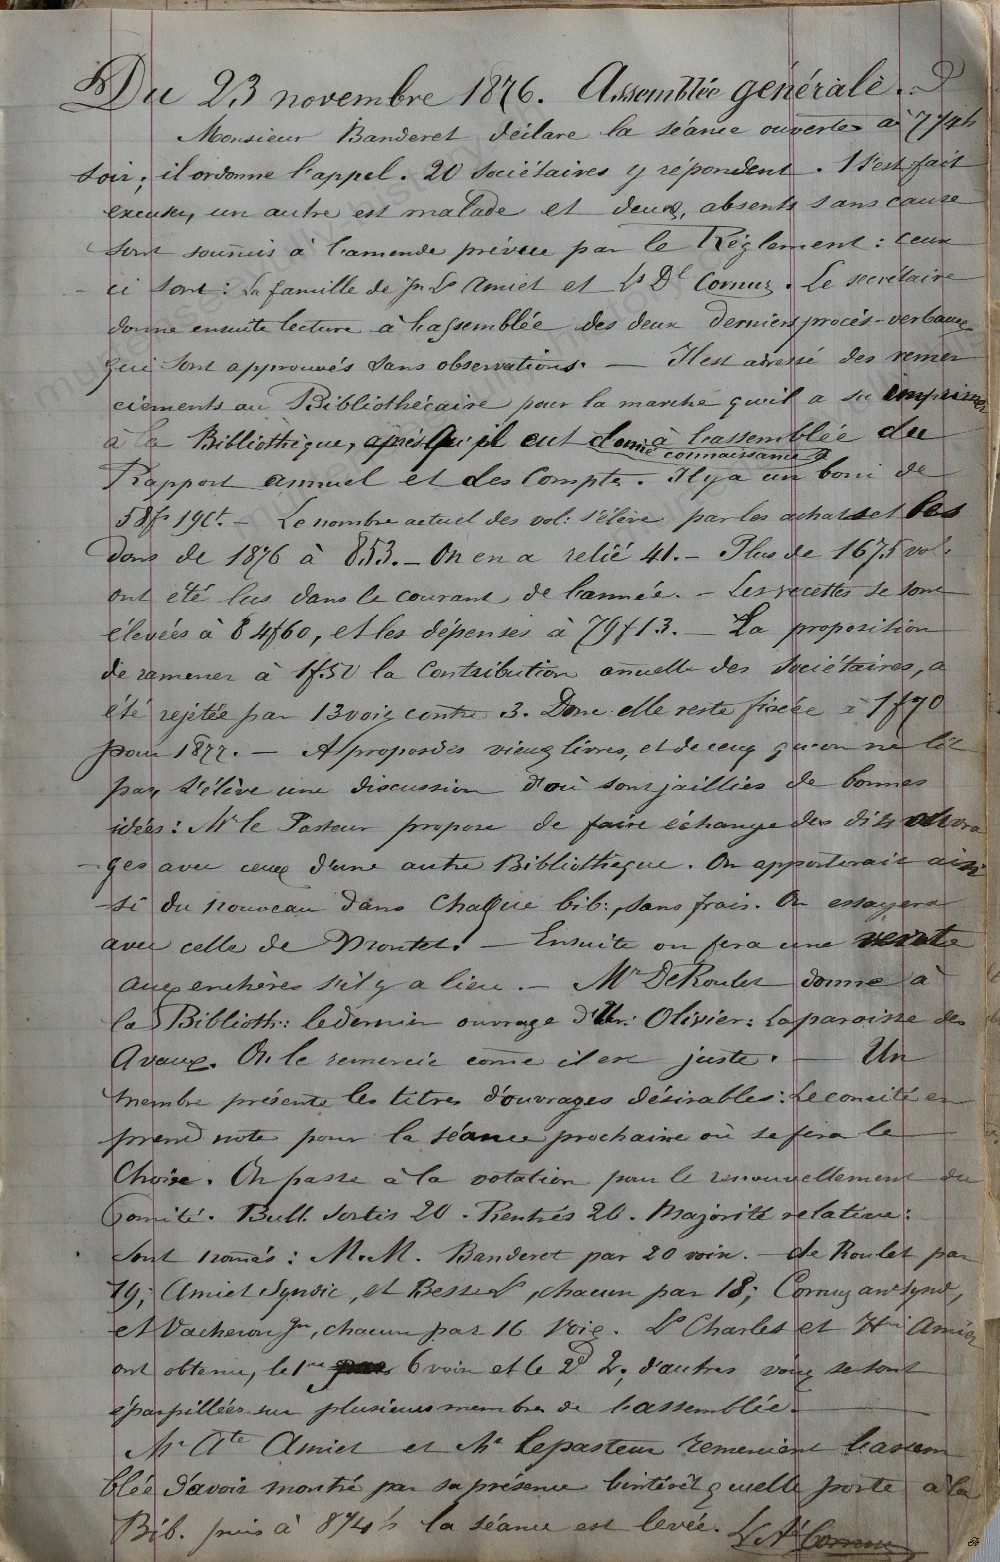 Du 23 novembre 1876. Assemblée générale.
Monsieur Banderet déclare la séance ouverte à 7 1/4 h
soir; il ordonne l'appel. 20 sociétaires y répondent. 1 s'est fait
excuser, un autre est malade et deux, absents sans cause
sont soumis à l'amende prévue par le Règlement: ceux
ci sont: la famille de Jn Ls Amiet et Ls Dl Cornuz. Le secrétaire
donne ensuite lecture à l'assemblée des deux derniers procès-verbaux
qui sont approuvés sans observations. — Il est adressé des remer
ciements au Bibliothécaire pour la marche qu'il a su imprimer
à la Bibliothèque, après qu'il eut donné à l'assemblée du
connaissance
Rapport annuel et des Compte. Il y a un boni de
58f 19ct. — Le nombre actuel des vol: s'élève par les achats et les
dons de 1876 à 853. — On en a relié 41. — Plus de 1675 vol:
ont été lus dans le courant de l'année. — Les recettes se sont
élevées à 84f60, et les dépenses à 79f13. — La proposition
de ramener à 1f.50 la contribution annuelle des sociétaires, a
été rejetée par 13 voix contre 3. Donc elle reste fixée à 1f70
pour 1877. — A propos des vieux livres, et de ceux qu'on ne lit
pas, s'élève une discussion d'où sont jaillies de bonnes
idées: Mr le Pasteur propose de faire échange des dits ouvra
ges avec ceux d'une autre Bibliothèque. On apporterait ain
-si du nouveau dans chaque bib:, sans frais. On essayera
avec celle de Montet. — Ensuite on fera une vente
aux enchères s'il y a lieu. — Mr DeRoulet donne à
la Biblioth: le dernier ouvrage d'Ur. Olivier: La paroisse des
Avaux. On le remercie come il est juste. — Un
membre présente les titres d'ouvrages désirables: Le comité en
prend note pour la séance prochaine où se fera le
Choix. On passe à la votation pour le renouvellement du
Comité. Bull. sortis 20. Rentrés 20. Majorité relative:
sont només: M.M. Banderet par 20 voix. — de Roulet par
19; Amiet Syndic, et Besse Ls, chacun par 18; Cornuz anc. synd,
et Vacheron Jn, chacun par 16 voix. Ls Charles et Hri Amiet
ont obtenu, le 1er 6 voix et le 2d 2; d'autres voix se sont
éparpillées sur plusieurs membres de l'assemblée.
Mr Ate Amiet et Mr le pasteur remercient l'assem
blée d'avoir montré par sa présence l'intérêt qu'elle porte à la
Bib. puis à 8 3/4 h la séance est levée. Ls Ad Cornuz